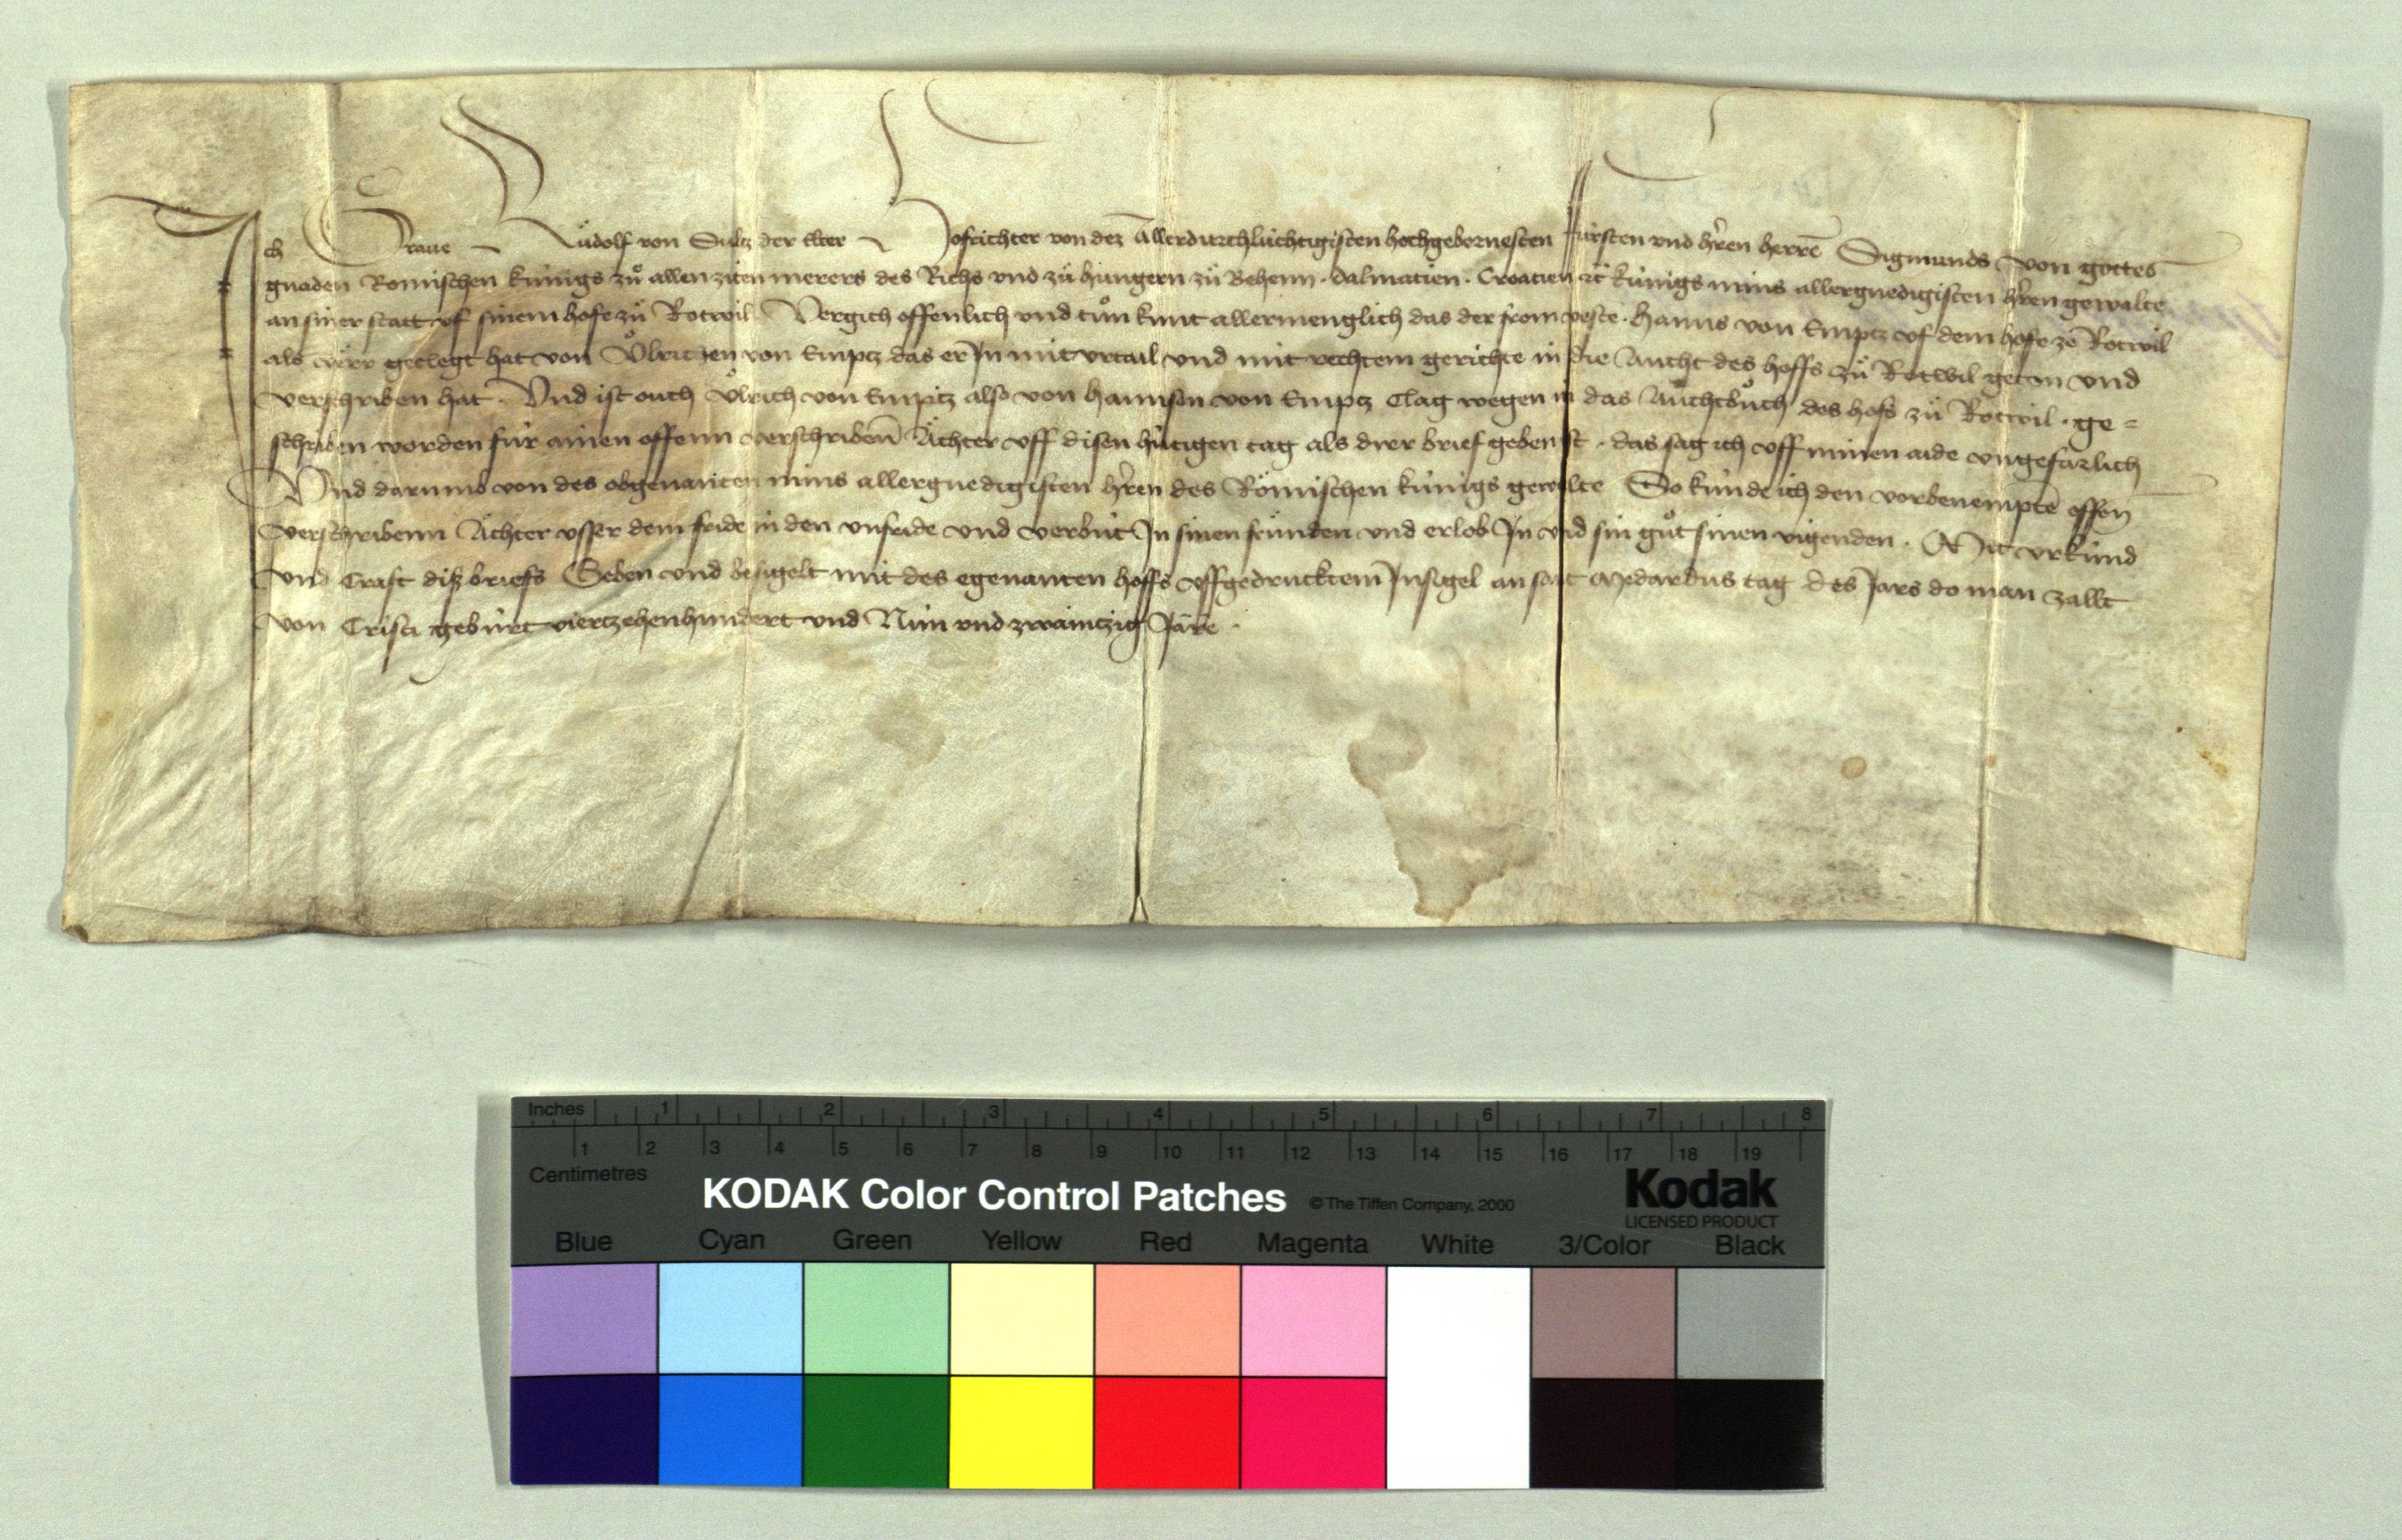 Ich Graue Rüdolf von Sultz der elter Hofrichter von dez Allerdurchlúchtigisten hochgebornesten fúrsten vnd hr̃en herrẽ Sigmunds von gottes
gnaden Romischen kúnigs zuͦ allen ziten merers des Richs vnd zuͦ hungern zuͦ Behem · dalmatien · Croatien ꝛc kúnigs mins allergnedigisten hr̃en gewalte
an siner statt vf sinem hofe zuͦ Rotwil Vergich offenlich vnd tuͦn kunt allermenglich das der from veste · hanns von Emptz vf dem hofe zẽ Rotwil
als verr geclegt hat von Uͦlrichen von Emptz das er Jn mit vrtail vnd mit rechtem gerichte in die Aucht des hoffs zuͦ Rotwil geton vnd
verschriben hat · Vnd ist ouch Uͦlrich von Emptz also von hannsen von Emptz Clag wegen in das Auchtbuͦch des hofs zuͦ Rotwil · ge=
schriben worden fúr ainen offenn verschribenn̄ Ächter vff disen hútigen tag als dirr brief geben ist · das sag ich vff minen aide vngefarlich
Vnd darumb von des obgenanten mins allergnedigisten hr̃en des Römischen kúnigs gewalte So kúnde ich den vorbenemptẽ offen̄
verschribenn Ächter vsser dem fride in den vnfride vnd verbút Jn sinen frúnden vnd erlob Jn vnd sin guͦt sinen vigenden · Mit vrkúnd
vnd Craft diß briefs Geben vnd besigelt mit des egenanten hoffs vffgedrucktem Jnsigel an sant Medardus tag des Jars do man zallt
von Cristi gebúrt viertzehenhundert vnd Nún vnd zwaintzig Jare ·
Inches 1 2 3 4 5 6 7 8
1 2 3 4 5 6 7 8 9 10 11 12 13 14 15 16 17 18 19
Centimetres
KODAK Color Control Patches © The Tiffen Company, 2000 Kodak
LICENSED PRODUCT
Blue Cyan Green Yellow Red Magenta White 3/Color Black